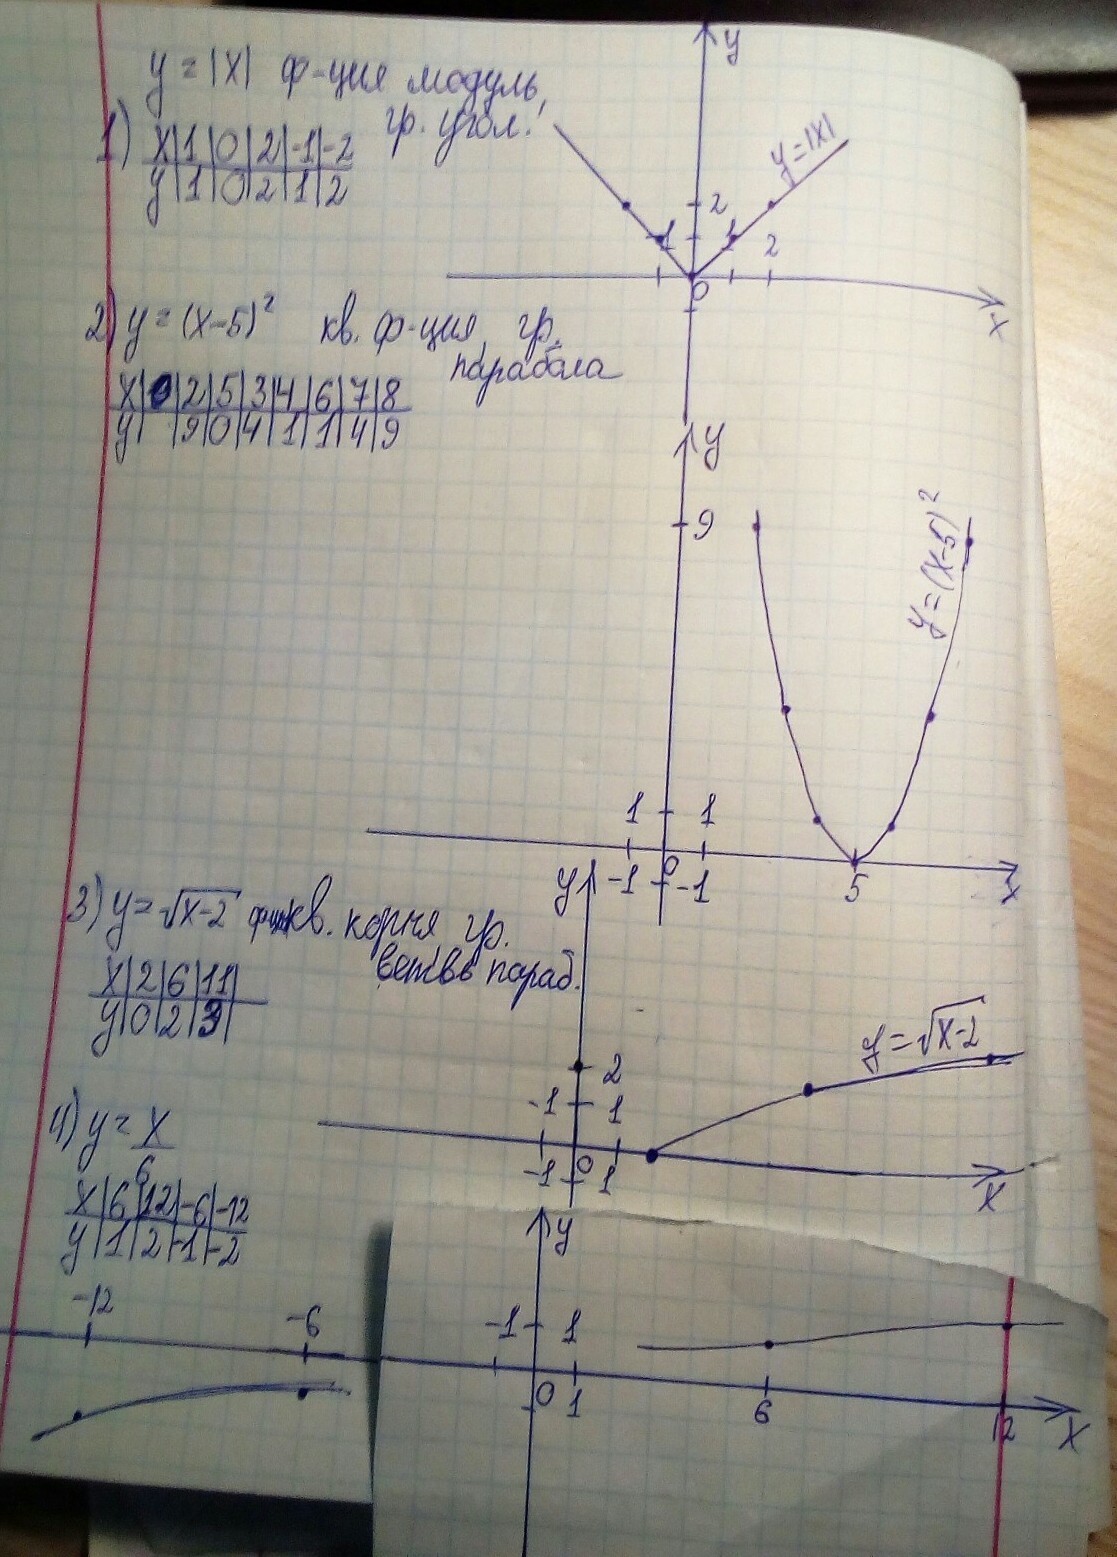 y = |x| ф-ция модуль,
гр. угол.
1) x|1|0|2|-1|-2
y|1|0|2|1|2
y
y=|x|
2
-1 1 2
0
x
2) y = (x-5)² кв. ф-ция, гр.
парабола
x|0|2|5|3|4|6|7|8
y| |9|0|4|1|1|4|9
y
9
y=(x-5)²
1 1
-1 0 -1 5 x
3) y = √x-2 ф-ция кв. корня гр.
ветвь параб.
x|2|6|11|
y|0|2|3|
y
y=√x-2
2
-1 1
-1 0 1 x
4) y = x/6
x|6|12|-6|-12
y|1|2|-1|-2
y
-12 -6 -1 1
0 1 6 12 x